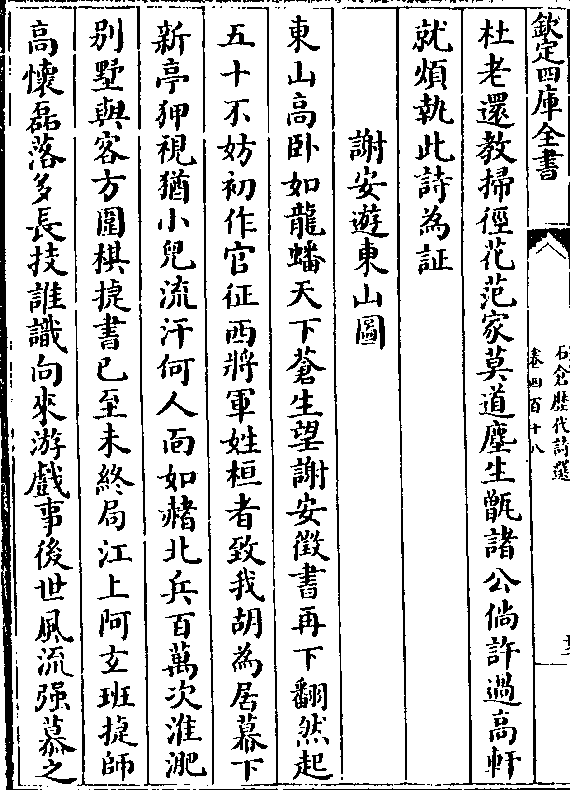 欽定四庫全書
石倉歴代詩選
卷四百十八
杜老還教掃徑花范家莫道塵生甑諸公倘許過高軒
就煩執此詩為証
謝安遊東山圖
東山高卧如龍蟠天下蒼生望謝安徵書再下翻然起
五十不妨初作官征西將軍姓桓者致我胡為居幕下
新亭狎視猶小兒流汗何人面如赭北兵百萬次淮淝
别墅與客方圍棋捷書已至未終局江上阿玄班捷師
高懷磊落多長技誰識向來游戲事後世風流强慕之